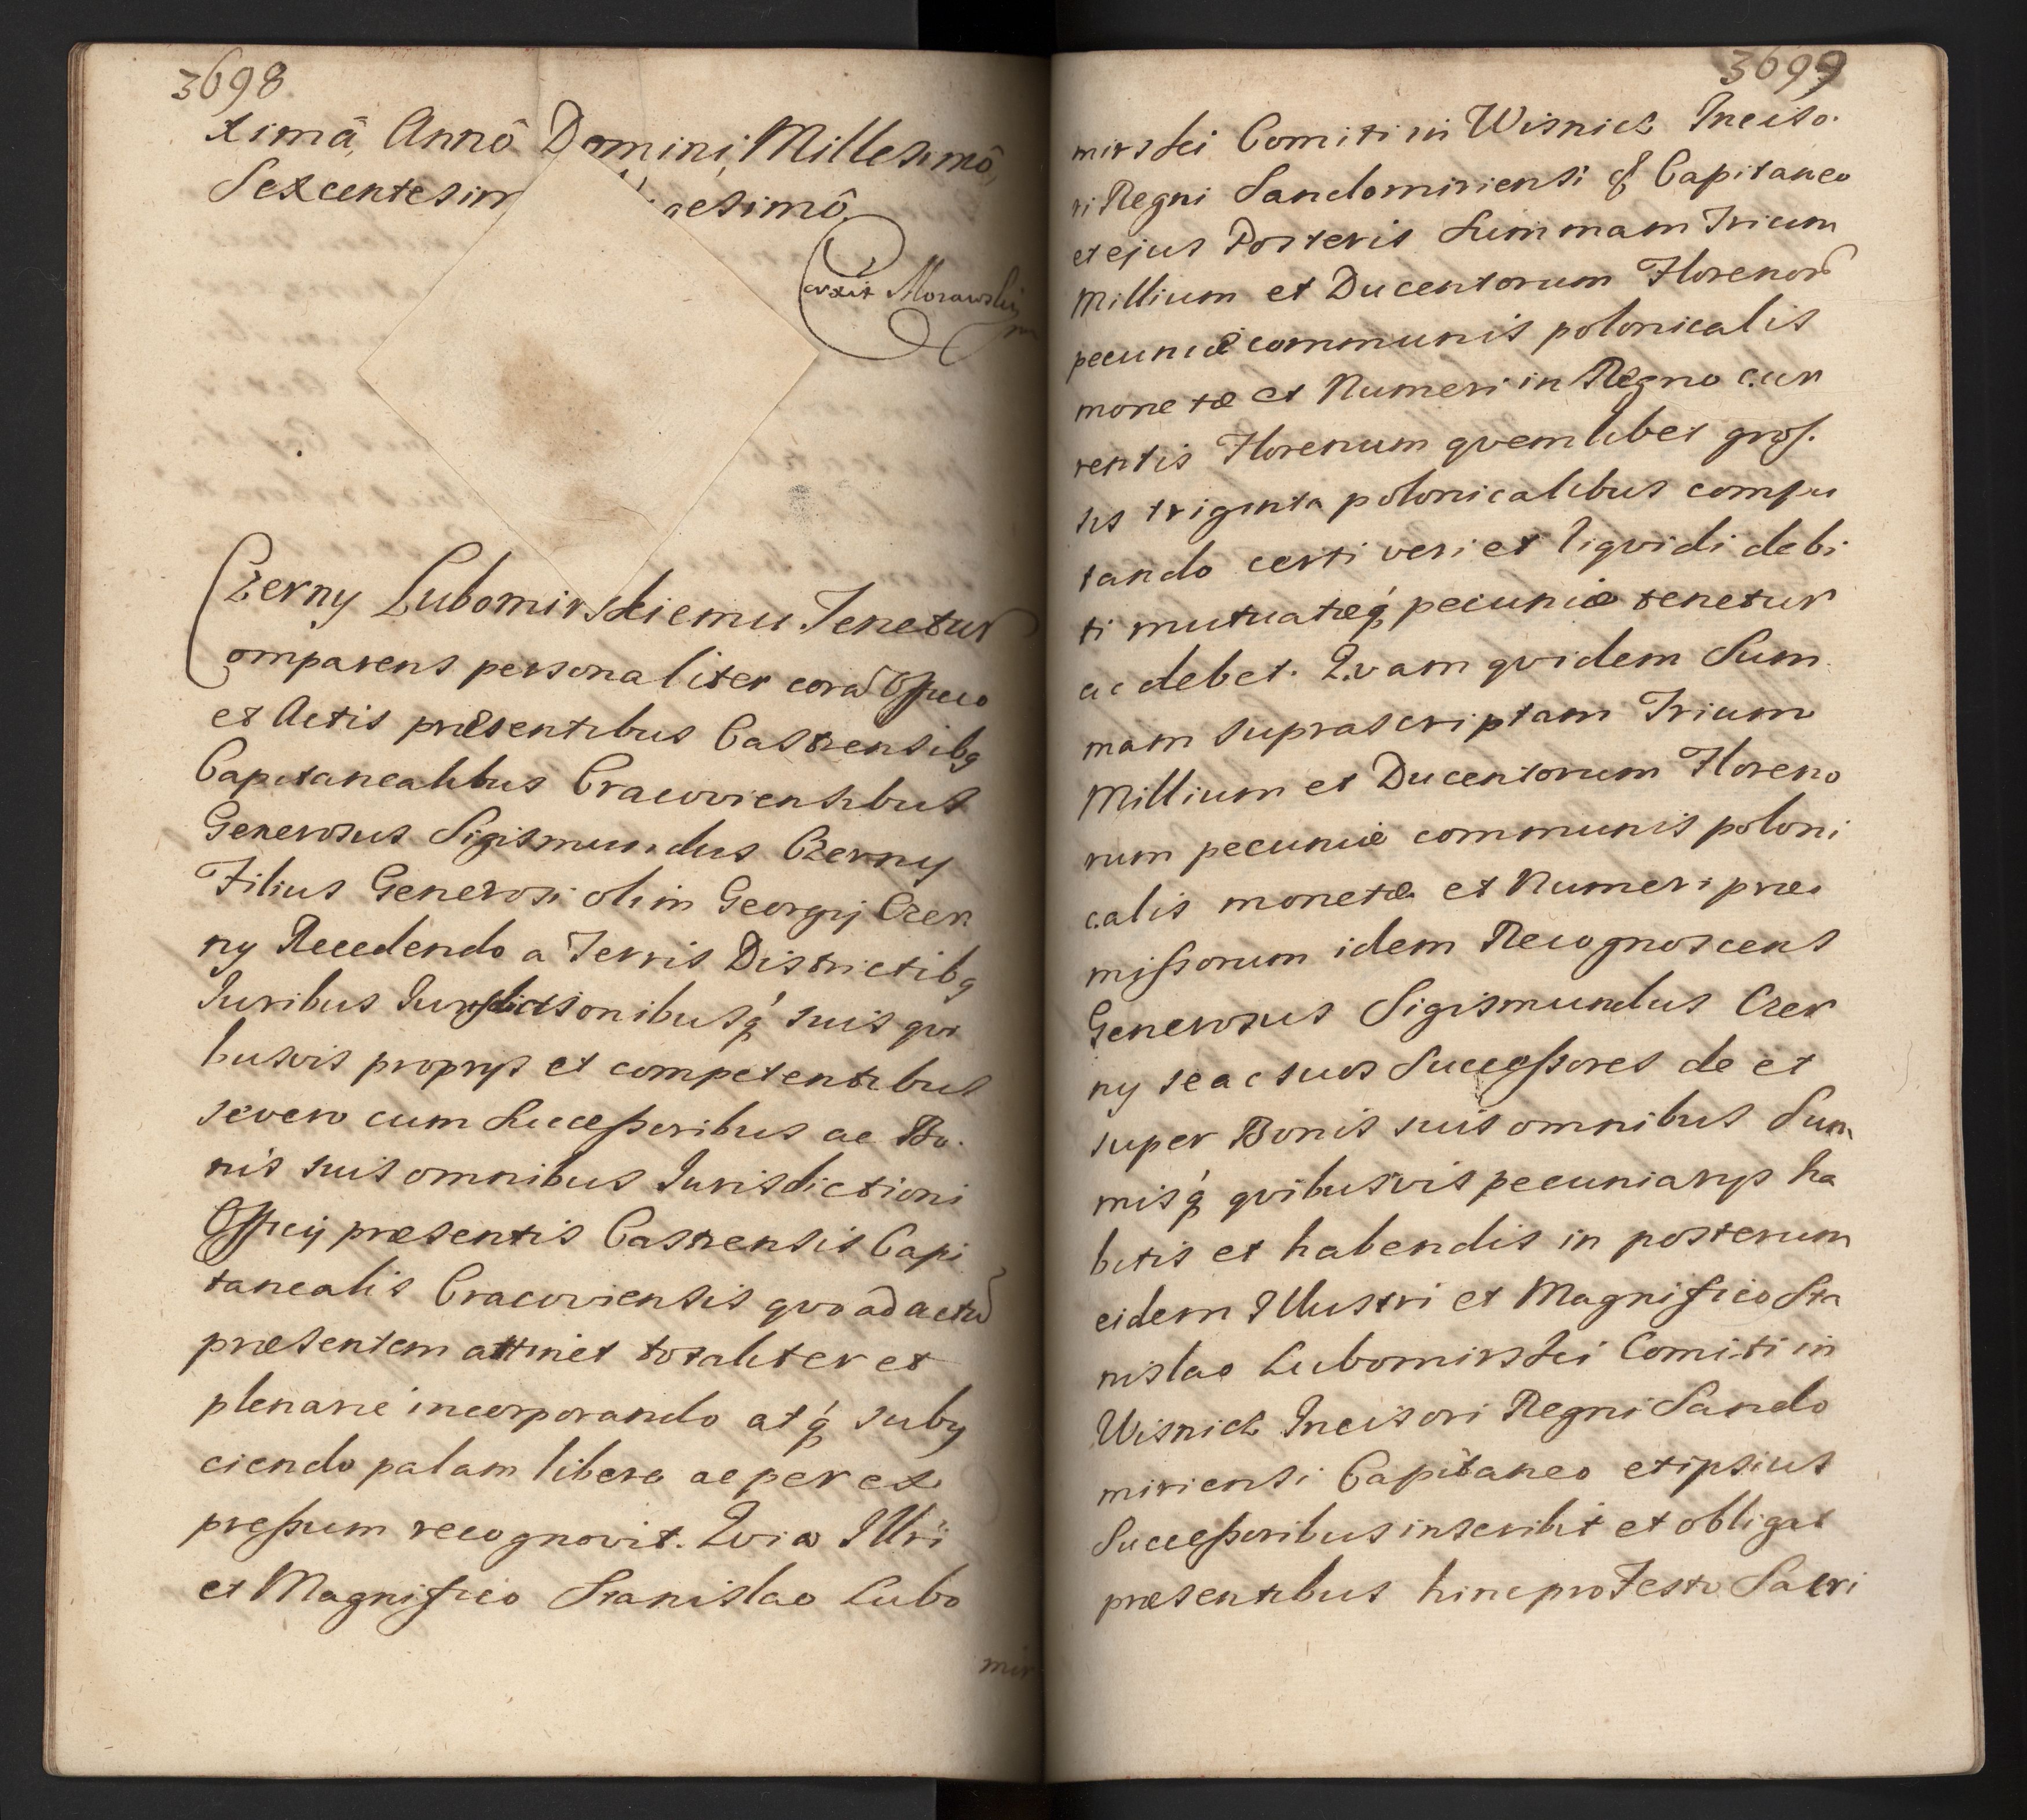 3698
ximâ, Annô Domini Millesimô,
Sexcentesim gesimô,
Morawski
mp
Czerny Lubomirskiemu Tenetur
Comparens personaliter corã Officio
et Actis præsentibus Castrensibq
Capitanealibus Cracoviensibus
Generosus Sigismundus Czerny
Filius Generosi olim Georgij Czer
ny Recedendo a Terris Districtibq
Iuribus Iurisdictionibusq́ suis qvi
busvis proprijs et competentibus
severo cum Successoribus ac Bo.
nis suis omnibus Iurisdictioni
Officij præsentis Castrensis Capi
tanealis Cracoviensis qvo ad actũ
præsentem attinet totaliter et
plenarie incorporando atq́ subij
ciendo palam libere ac per ex
pressum recognovit. Qvia Illri
et Magnifico Stanislao Lubo
mir
3699
mirski Comiti in Wisnicz Inciso.
ri Regni Sandomiriensi & Capitaneo
et ejus Posteris Summam Trium
Millium et Ducentorum Florenorũ
pecuniæ communis polonicalis
monetæ et Numeri in Regno cur
rentis Florenum qvemlibet gros.
sis triginta polonicalibus compu
tando certi veri et liqvidi debi
ti mutuatæq́ pecuniæ tenetur
ac debet. Qvam qvidem Sum
mam suprascriptam Trium
Millium et Ducentorum Floreno
rum pecuniæ communis poloni
calis monetæ et Numeri præ
missorum idem Recognoscens
Generosus Sigismundus Czer
ny se ac suos Successores de et
super Bonis suis omnibus Sum
misq́ qvibusvis pecuniarijs ha
bitis et habendis in posterum
eidem Illustri et Magnifico Sta
nislao Lubomirski Comiti in
Wisnicz Incisori Regni Sando
miriensi Capitaneo et ipsius
Successoribus inscribit et obligat
præsentibus hinc pro Festo Sacri